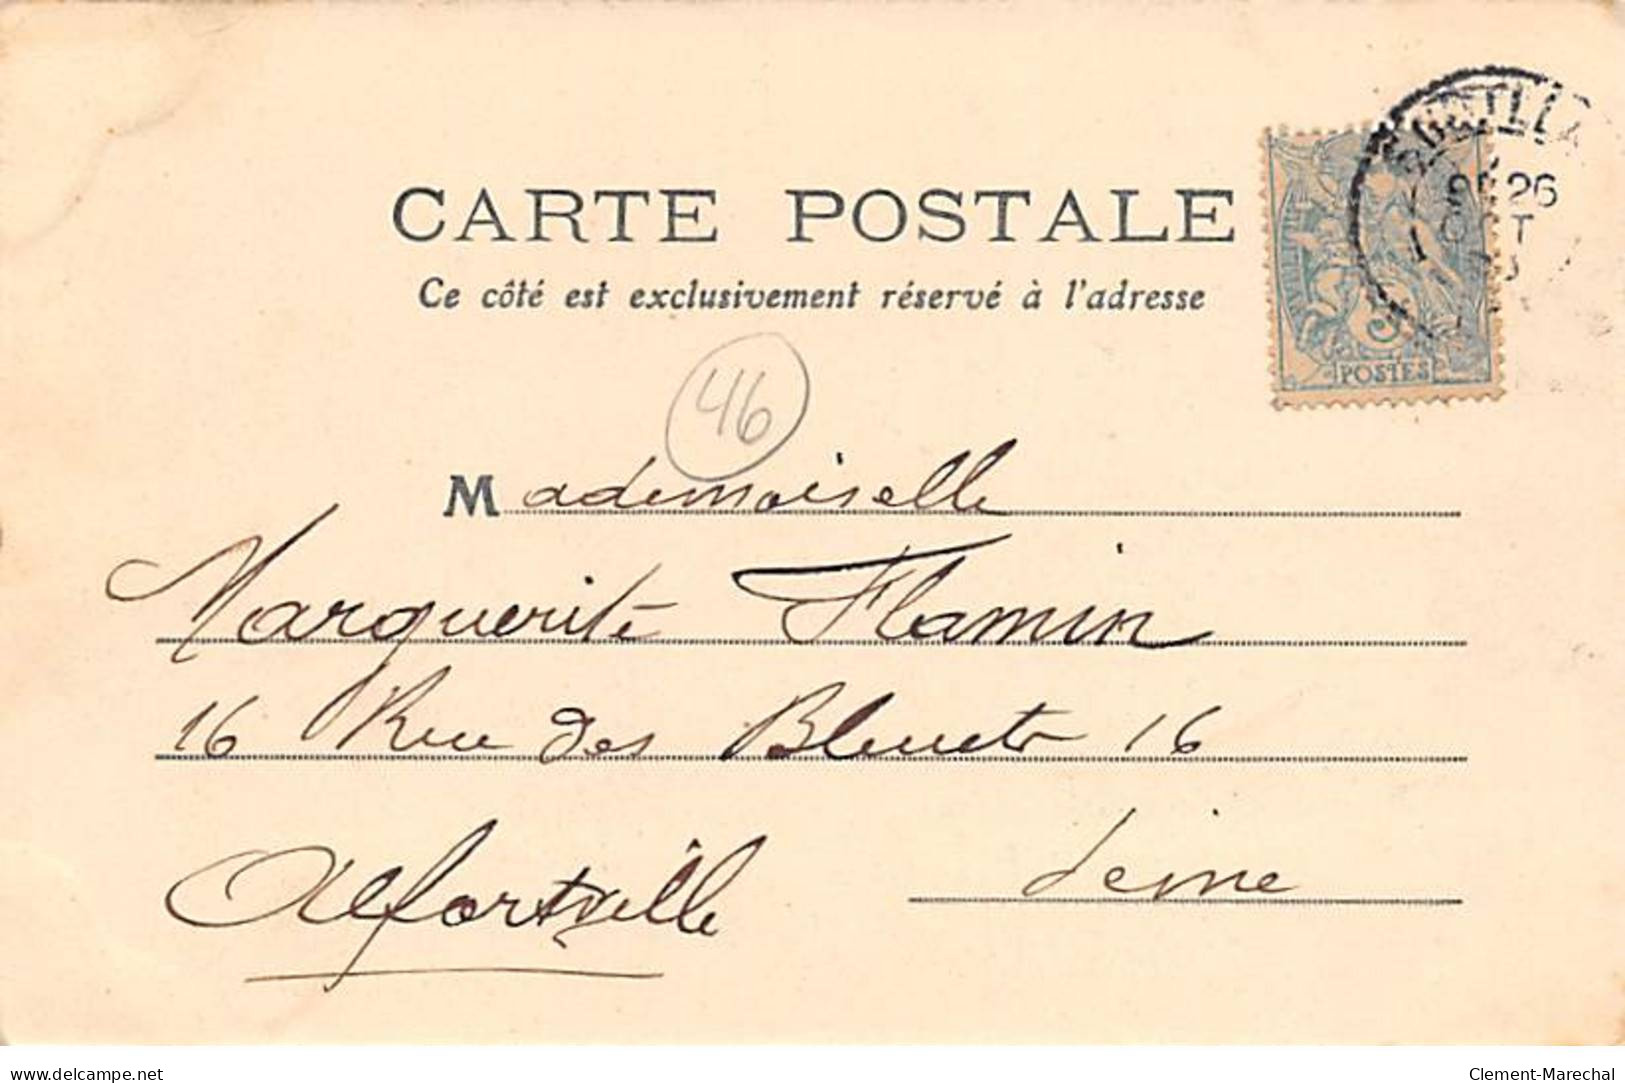 CARTE POSTALE
Ce côté est exclusivement réservé à l'adresse
26
OCT
5
POSTES
46
Mademoiselle
Marguerite Flamin
16 Rue des Bleuets 16
Alfortville Seine
delcampe.net
Clement-Marechal